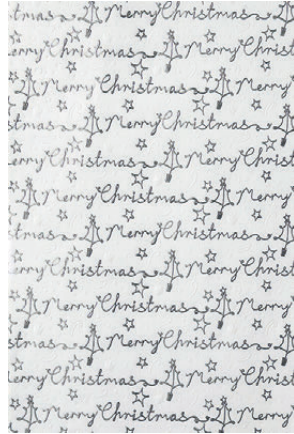 stmas Merry Christmas
erry Christmas Merry Christ
Merry Christmas Merry
stmas Merry Christmas
erry Christmas Merry Christ
Merry Christmas Merry
stmas Merry Christmas
erry Christmas Merry Christ
Merry Christmas Merry
stmas Merry Christmas
erry Christmas Merry Christ
Merry Christmas Merry